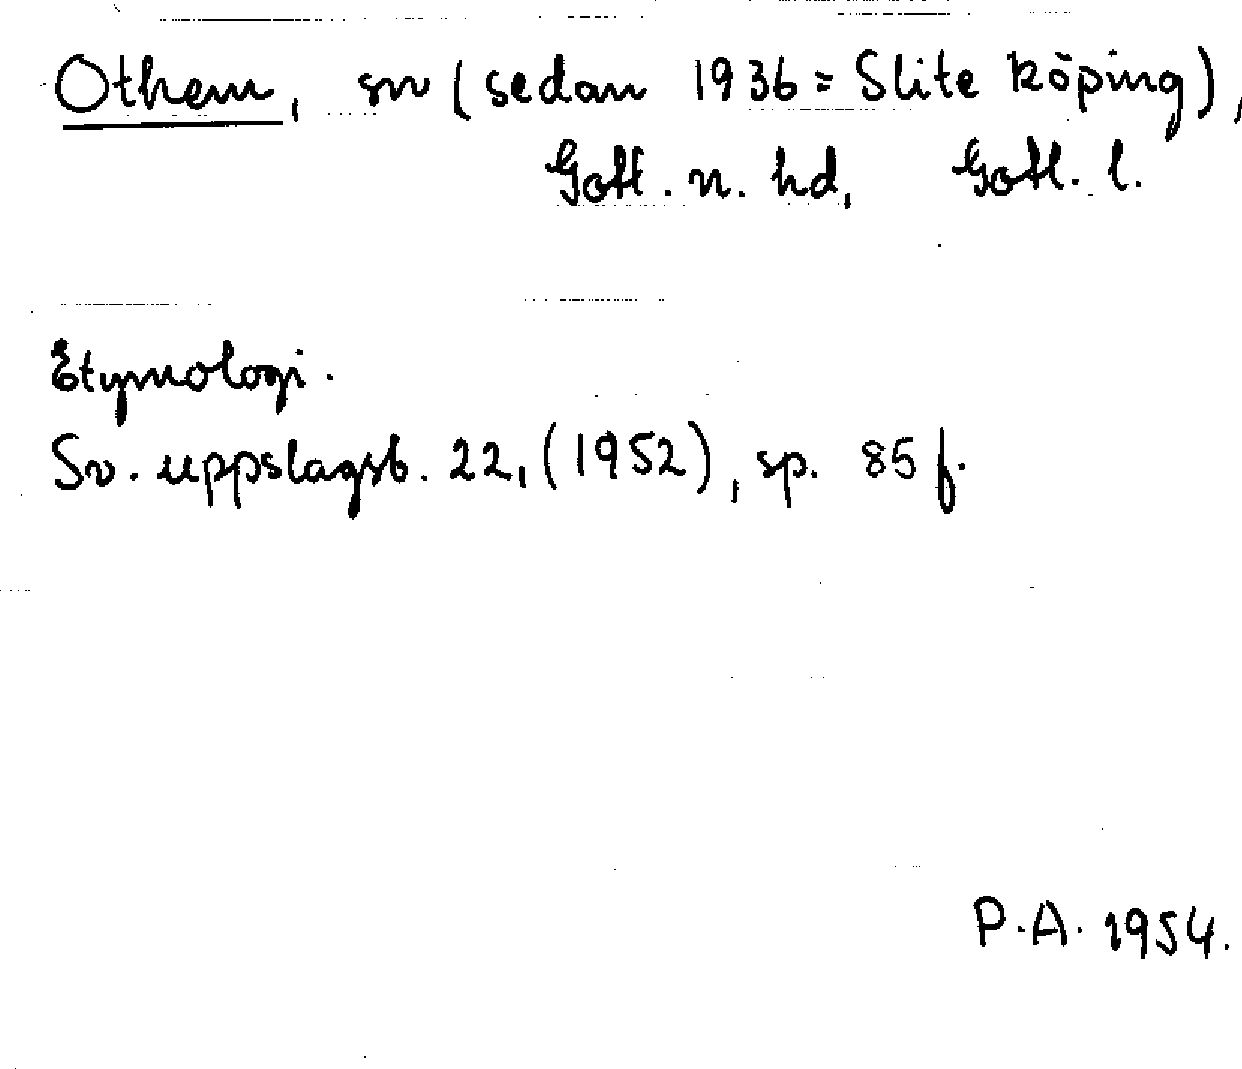 Othem, sn (sedan 1936 = Slite köping),
Gotl. n. hd, Gotl. l.
Etymologi.
Sv. uppslagsb. 22, (1952), sp. 85 f.
P.A. 1954.